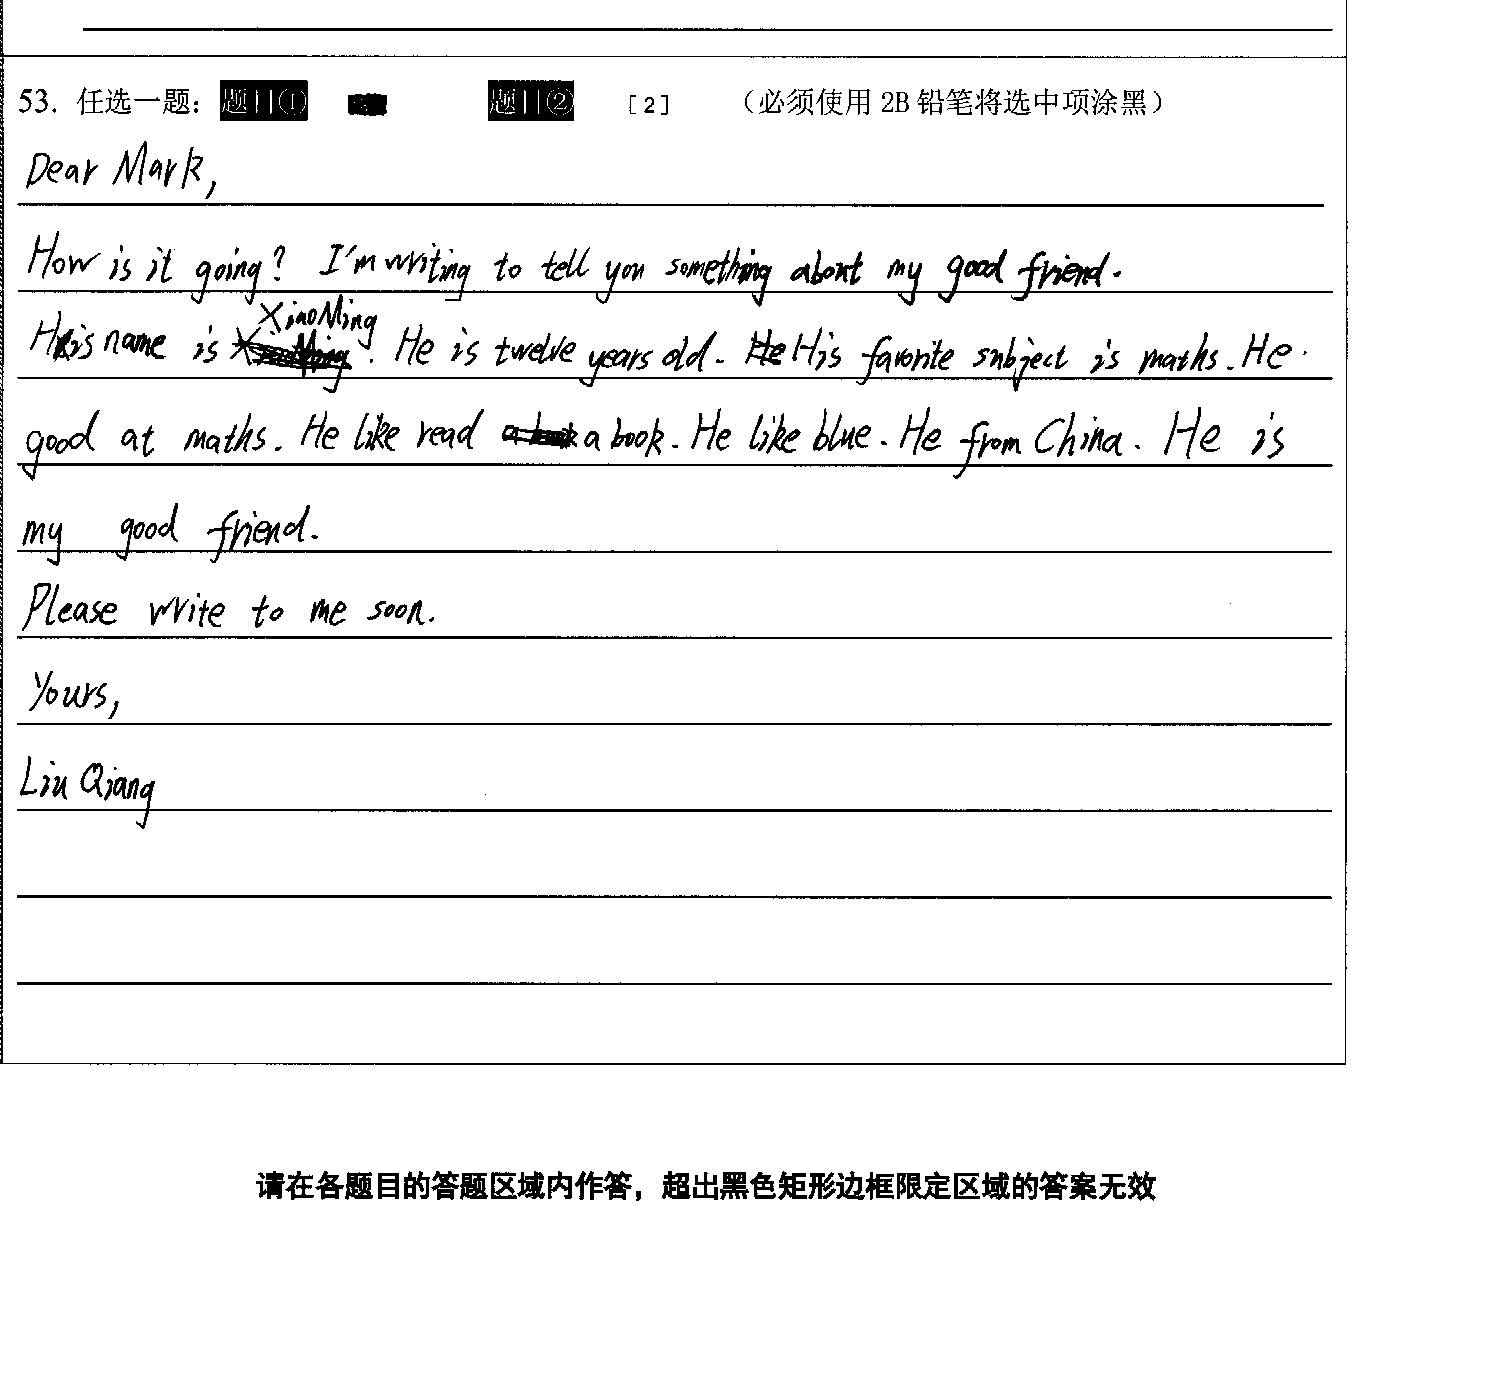 53. 任选一题： 题目① 题目② [2] （必须使用 2B 铅笔将选中项涂黑）
Dear Mark,
How is it going? I'm writing to tell you something about my good friend.
His name is XiaoMing. He is twelve years old. His favorite subject is maths. He
good at maths. He like read a book. He like blue. He from China. He is
my good friend.
Please write to me soon.
Yours,
Liu Qiang
请在各题目的答题区域内作答，超出黑色矩形边框限定区域的答案无效